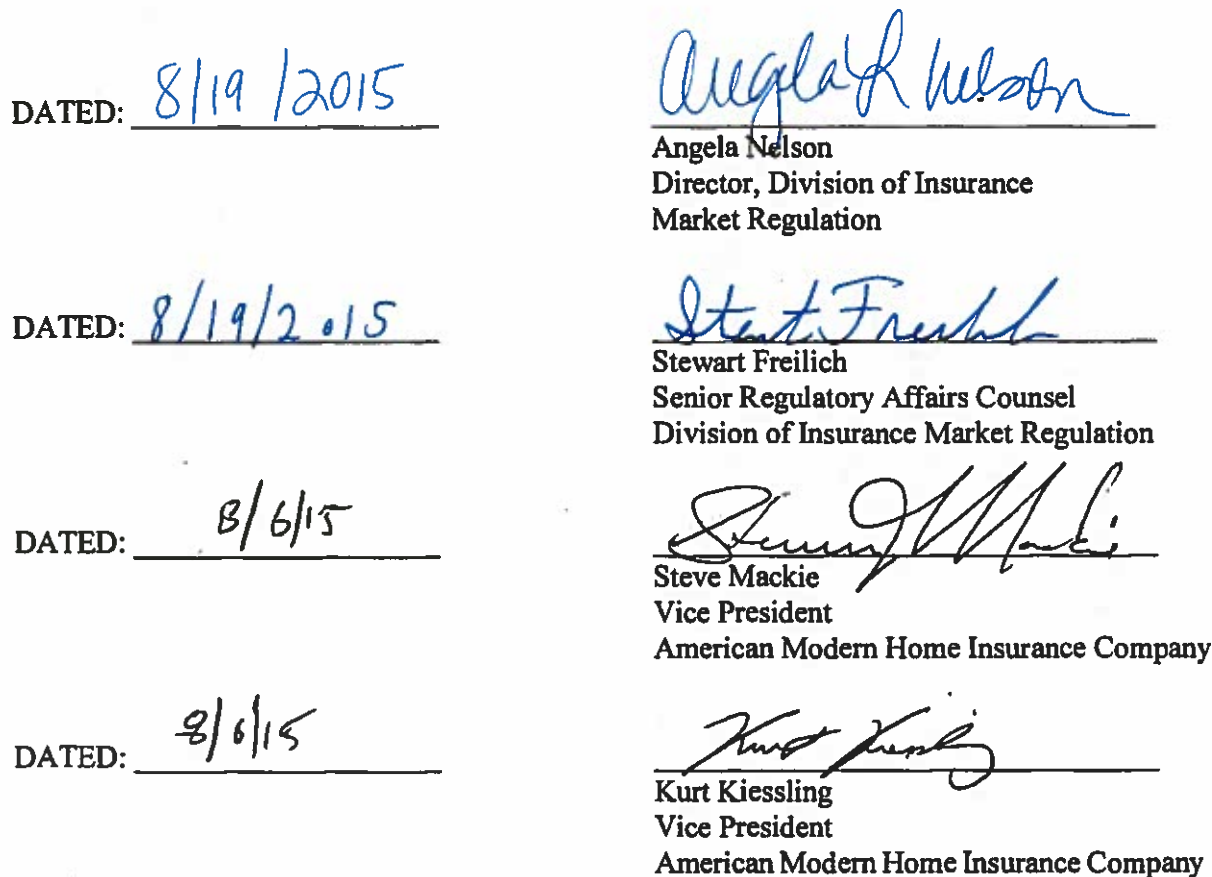 DATED: 8/19/2015 Angela L Nelson
Angela Nelson
Director, Division of Insurance
Market Regulation
DATED: 8/19/2015 Stewart Freilich
Stewart Freilich
Senior Regulatory Affairs Counsel
Division of Insurance Market Regulation
DATED: 8/6/15 Steven J Mackie
Steve Mackie
Vice President
American Modern Home Insurance Company
DATED: 8/6/15 Kurt Kiessling
Kurt Kiessling
Vice President
American Modern Home Insurance Company